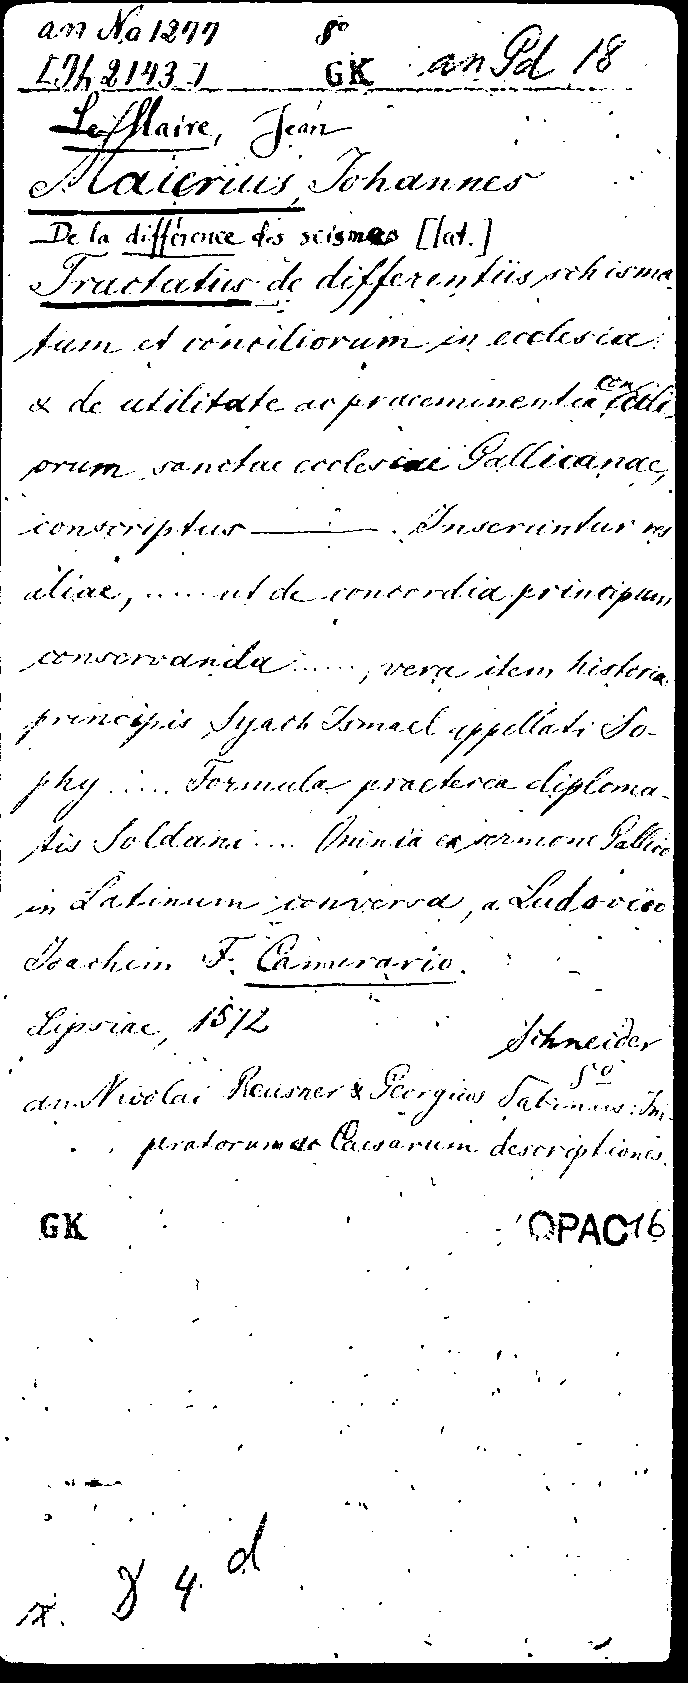 an Na 1277 8°
I Th 2143-1 GK an Pd 18
Le Maire, Jean
Maierius, Johannes
De la différence des scismes [lat.]
Tractatus de differentiis schisma
tum et conciliorum in ecclesia
& de utilitate ac praeeminentia concili
orum sanctae ecclesiae Gallicanae,
conscriptus ——. Inseruntur res
aliae, ..... ut de concordia principum
conservanda ....., vera item historia
principis Syach Ismael appellati So-
phy ..... Formula praeterea diploma-
tis Soldani .... Omnia ex sermone Gallico
in Latinum conversa, a Ludovico
Joachim F. Camerario.
Lipsiae, 1572
Schneider
8°
an Nicolai Reusner & Georgius Sabinus: Im
peratorum ac Caesarum descriptiones.
GK OPAC 16
x. 8 4 d